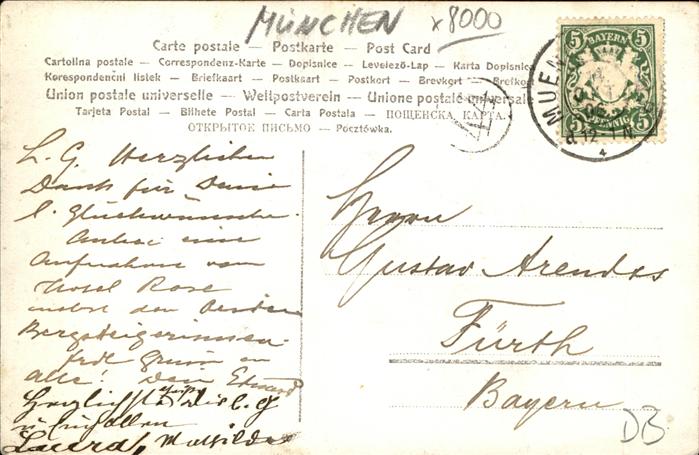 MÜNCHEN x 8000
Carte postale — Postkarte — Post Card
Cartolina postale — Correspondenz-Karte — Dopisnice — Levelezö-Lap — Karta Dopisnic
Korespondenční lístek — Briefkaart — Postkaart — Postkort — Brevkort — Brefko
Union postale universelle — Weltpostverein — Unione postale universale
Tarjeta Postal — Bilhete Postal — Carta Postala — ПОЩЕНСКА КАРТА.
ОТКРЫТОЕ ПИСЬМО — Pocztówka.
5 BAYERN 5
5 PFENNIG 5
MUEN
8. 12-1 N.
4
L. G. Herzlichen
Dank für Deine
l. Glückwünsche.
Anbei eine
Aufnahme vom
Hotel Rose
nebst den beiden
Bergsteigerinnen
frdl Gruss an
alle! Dein Eduard
Herzlichste Grüße Dir l. G
u. Euch allen
Laura, Mathilde
Herrn
Gustav Arendts
Fürth
Bayern
DB